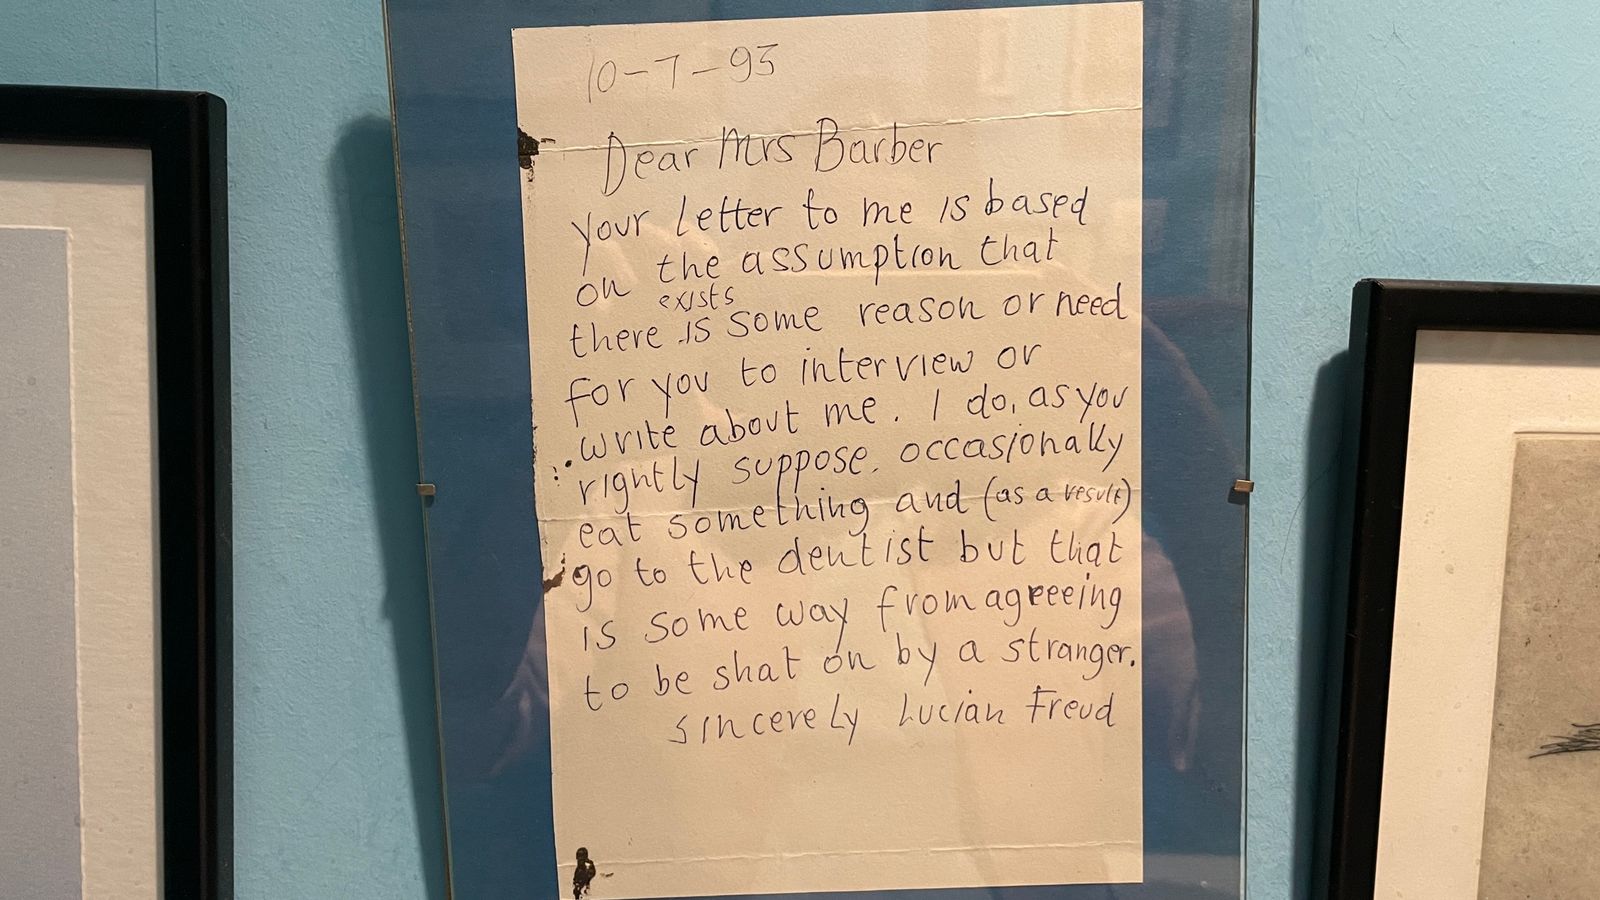 10-7-93
Dear Mrs Barber
your letter to me is based
on the assumption that
exists
there is some reason or need
for you to interview or
write about me. I do, as you
rightly suppose, occasionally
eat something and (as a result)
go to the dentist but that
is some way from agreeeing
to be shat on by a stranger.
sincerely Lucian Freud